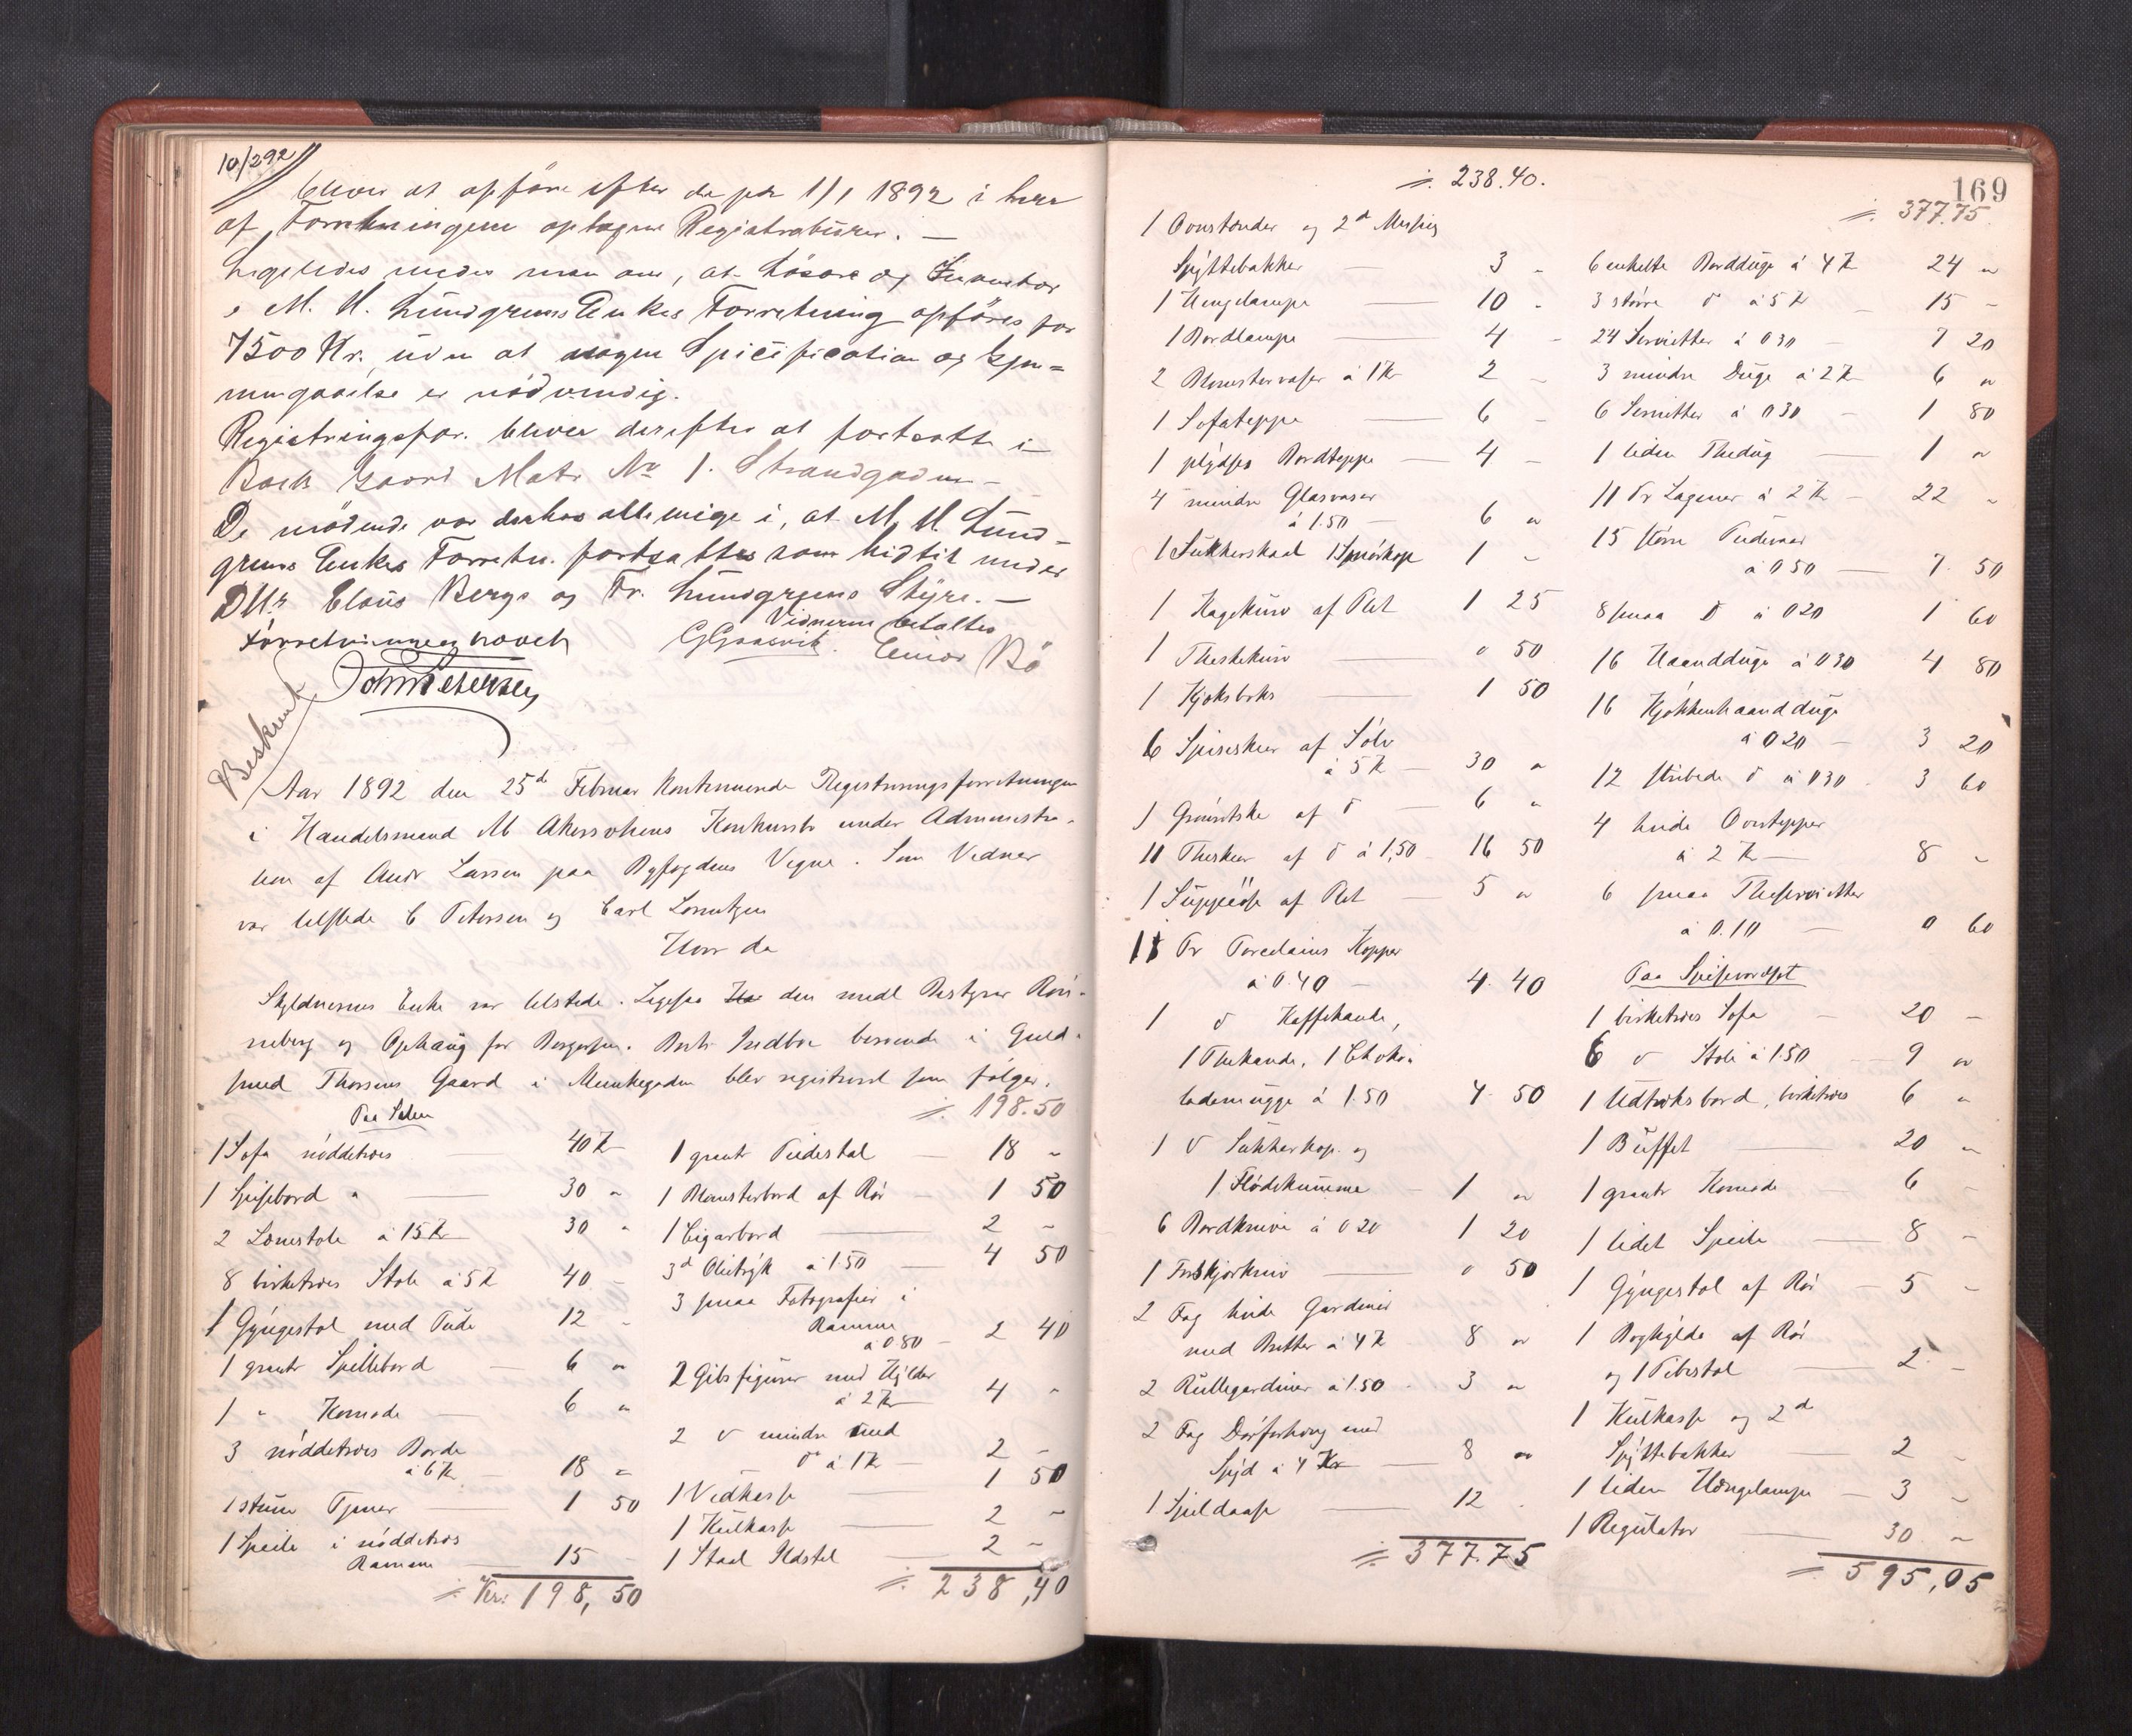 10/2 92
bliver at opføre efter de pr 1/1 1892 i hver
af Forretningerne optagne Registraturer. —
Ligeledes enedes man om, at Løsøre og Inventar
i M. H. Lundgrens Enkes Forretning opføres for
7500 Kr. uden at nogen Specification og Gjen-
nemgaaelse er nødvendig.
Registringsfor. bliver derefter at fortsætte i
Gaard Matr No 1. Strandgaden —
De mødende var derhos alle enige i, at M. H. Lund-
grens Enkes Forretn. fortsættes som hidtil under
DHr Claus Bergs og Fr. Lundgreens Styre. —
Vidnerne betaltes
Forretningen hævet
G Graasvik. Einar Bö
John Petersen
Beskrevet
Aar 1892 den 25de Februar kontinueredes Registreringsforretningen
i Handelsmand M Akersohens Konkursbo under Administra-
tion af Andr Larsen paa Byfogdens Vegne. Som Vidner
var tilstede C Petersen og Carl Lorentzen
Hvor da
Skyldnerens Enke var tilstede. Ligesaa den med Bestyrer Rön-
neberg og Ophaug for Borgersen. Boets Indbo beroende i Guld-
smed Thorsens Gaard i Munkegaden blev registreret som følger.
Paa Salen
1 Sofa nøddetræes — 40 Kr
1 Spisebord " — 30 "
2 Lænestole à 15 Kr 30 "
8 birketræes Stole à 5 Kr 40 -
1 Gyngestol med Pude 12 -
1 grantr Spillebord — 6 "
1 " Komode — 6 "
3 nøddetræes Borde
à 6 Kr — 18 "
1 stum Tjener — 1 50
1 Speile i nøddetræs
Ramme — 15
÷ Kr: 198,50
÷ 198.50
1 grantr Piedestal — 18 "
1 Blomsterbord af Rör — 1 50
1 Cigarbord — 2 -
3d Olietryk à 1.50 — 4 50
3 smaa Fotografier i
Ramme
à 0.80 — 2 40
2 Gibsfigurer med Hylder
à 2 Kr — 4 "
2 d mindre med
do à 1 Kr — 2 -
1 Vedkasse — 1 50
1 Kulkasse — 2 -
1 Staal Ildstel — 2 -
÷ 238,40
169
÷ 238.40.
1 Ovnstender og 2d Messing
Spyttebakker — 3 -
1 Hengelampe — 10 -
1 Bordlampe — 4 -
2 Blomstervaser à 1 Kr 2 -
1 Sofateppe — 6 -
1 plydses Bordteppe — 4 -
4 mindre Glasvaser
à 1.50 — 6 "
1 Sukkerskaal 1 Smörkop 1 -
1 Kagekurv af Plet 1 25
1 Theskekurv — " 50
1 Kjæksboks — 1 50
6 Spiseskeer af Sölv
à 5 Kr — 30 "
1 Grøntske af do — 6 "
11 Theskeer af do à 1,50 16 50
1 Suppeøse af Plet — 5 "
11 Pr Porcelains Kopper
à 0.40 — 4.40
1 d Kaffekande,
1 Thekande, 1 Choko-
lademugge à 1.50 4.50
1 d Sukkerkop. og
1 Flødekumme — 1 "
6 Bordknive à 0 20 1 20
1 Forskjærkniv — " 50
2 Fag hvide Gardiner
med Bretter à 4 Kr 8 "
2 Rullegardiner à 1.50 - 3 "
2 Fag Dørforhæng med
Spyd à 4 Kr — 8 "
1 Spildaase — 12 -
÷ 377.75
÷ 377.75
6 enkelte Bordduge à 4 Kr 24 "
3 større do à 5 Kr — 15 -
24 Servietter à 0 30 — 7 20
3 mindre Duge à 2 Kr 6 "
6 Servietter à 0 30 — 1 80
1 liden Thedug — 1 "
11 Pr Lagener à 2 Kr — 22 "
15 større Pudevaar
à 0 50 — 7. 50
8 smaa do à 0 20 1 60
16 Haandduge à 0 30 4 80
16 Kjøkkenhaandduge
à 0 20 — 3 20
12 stribede do à 0 30 - 3 60
4 hvide Ovntepper
à 2 Kr — 8 -
6 smaa Theservietter
à 0.10 — 0 60
Paa Spiseværelset
1 birketræes Sofa — 20 -
6 d Stole à 1.50 — 9 "
1 Udtræksbord, birketræes 6 "
1 Buffet — 20 "
1 grantr Komode — 6 -
1 lidet Speile — 8 -
1 Gyngestol af Rör — 5 -
1 Boghylde af Rör
og 1 Pibestol — 2 -
1 Kulkasse og 2d
Spyttebakker — 2 -
1 liden Hængelampe — 3 -
1 Regulator — 30 -
÷ 595,05